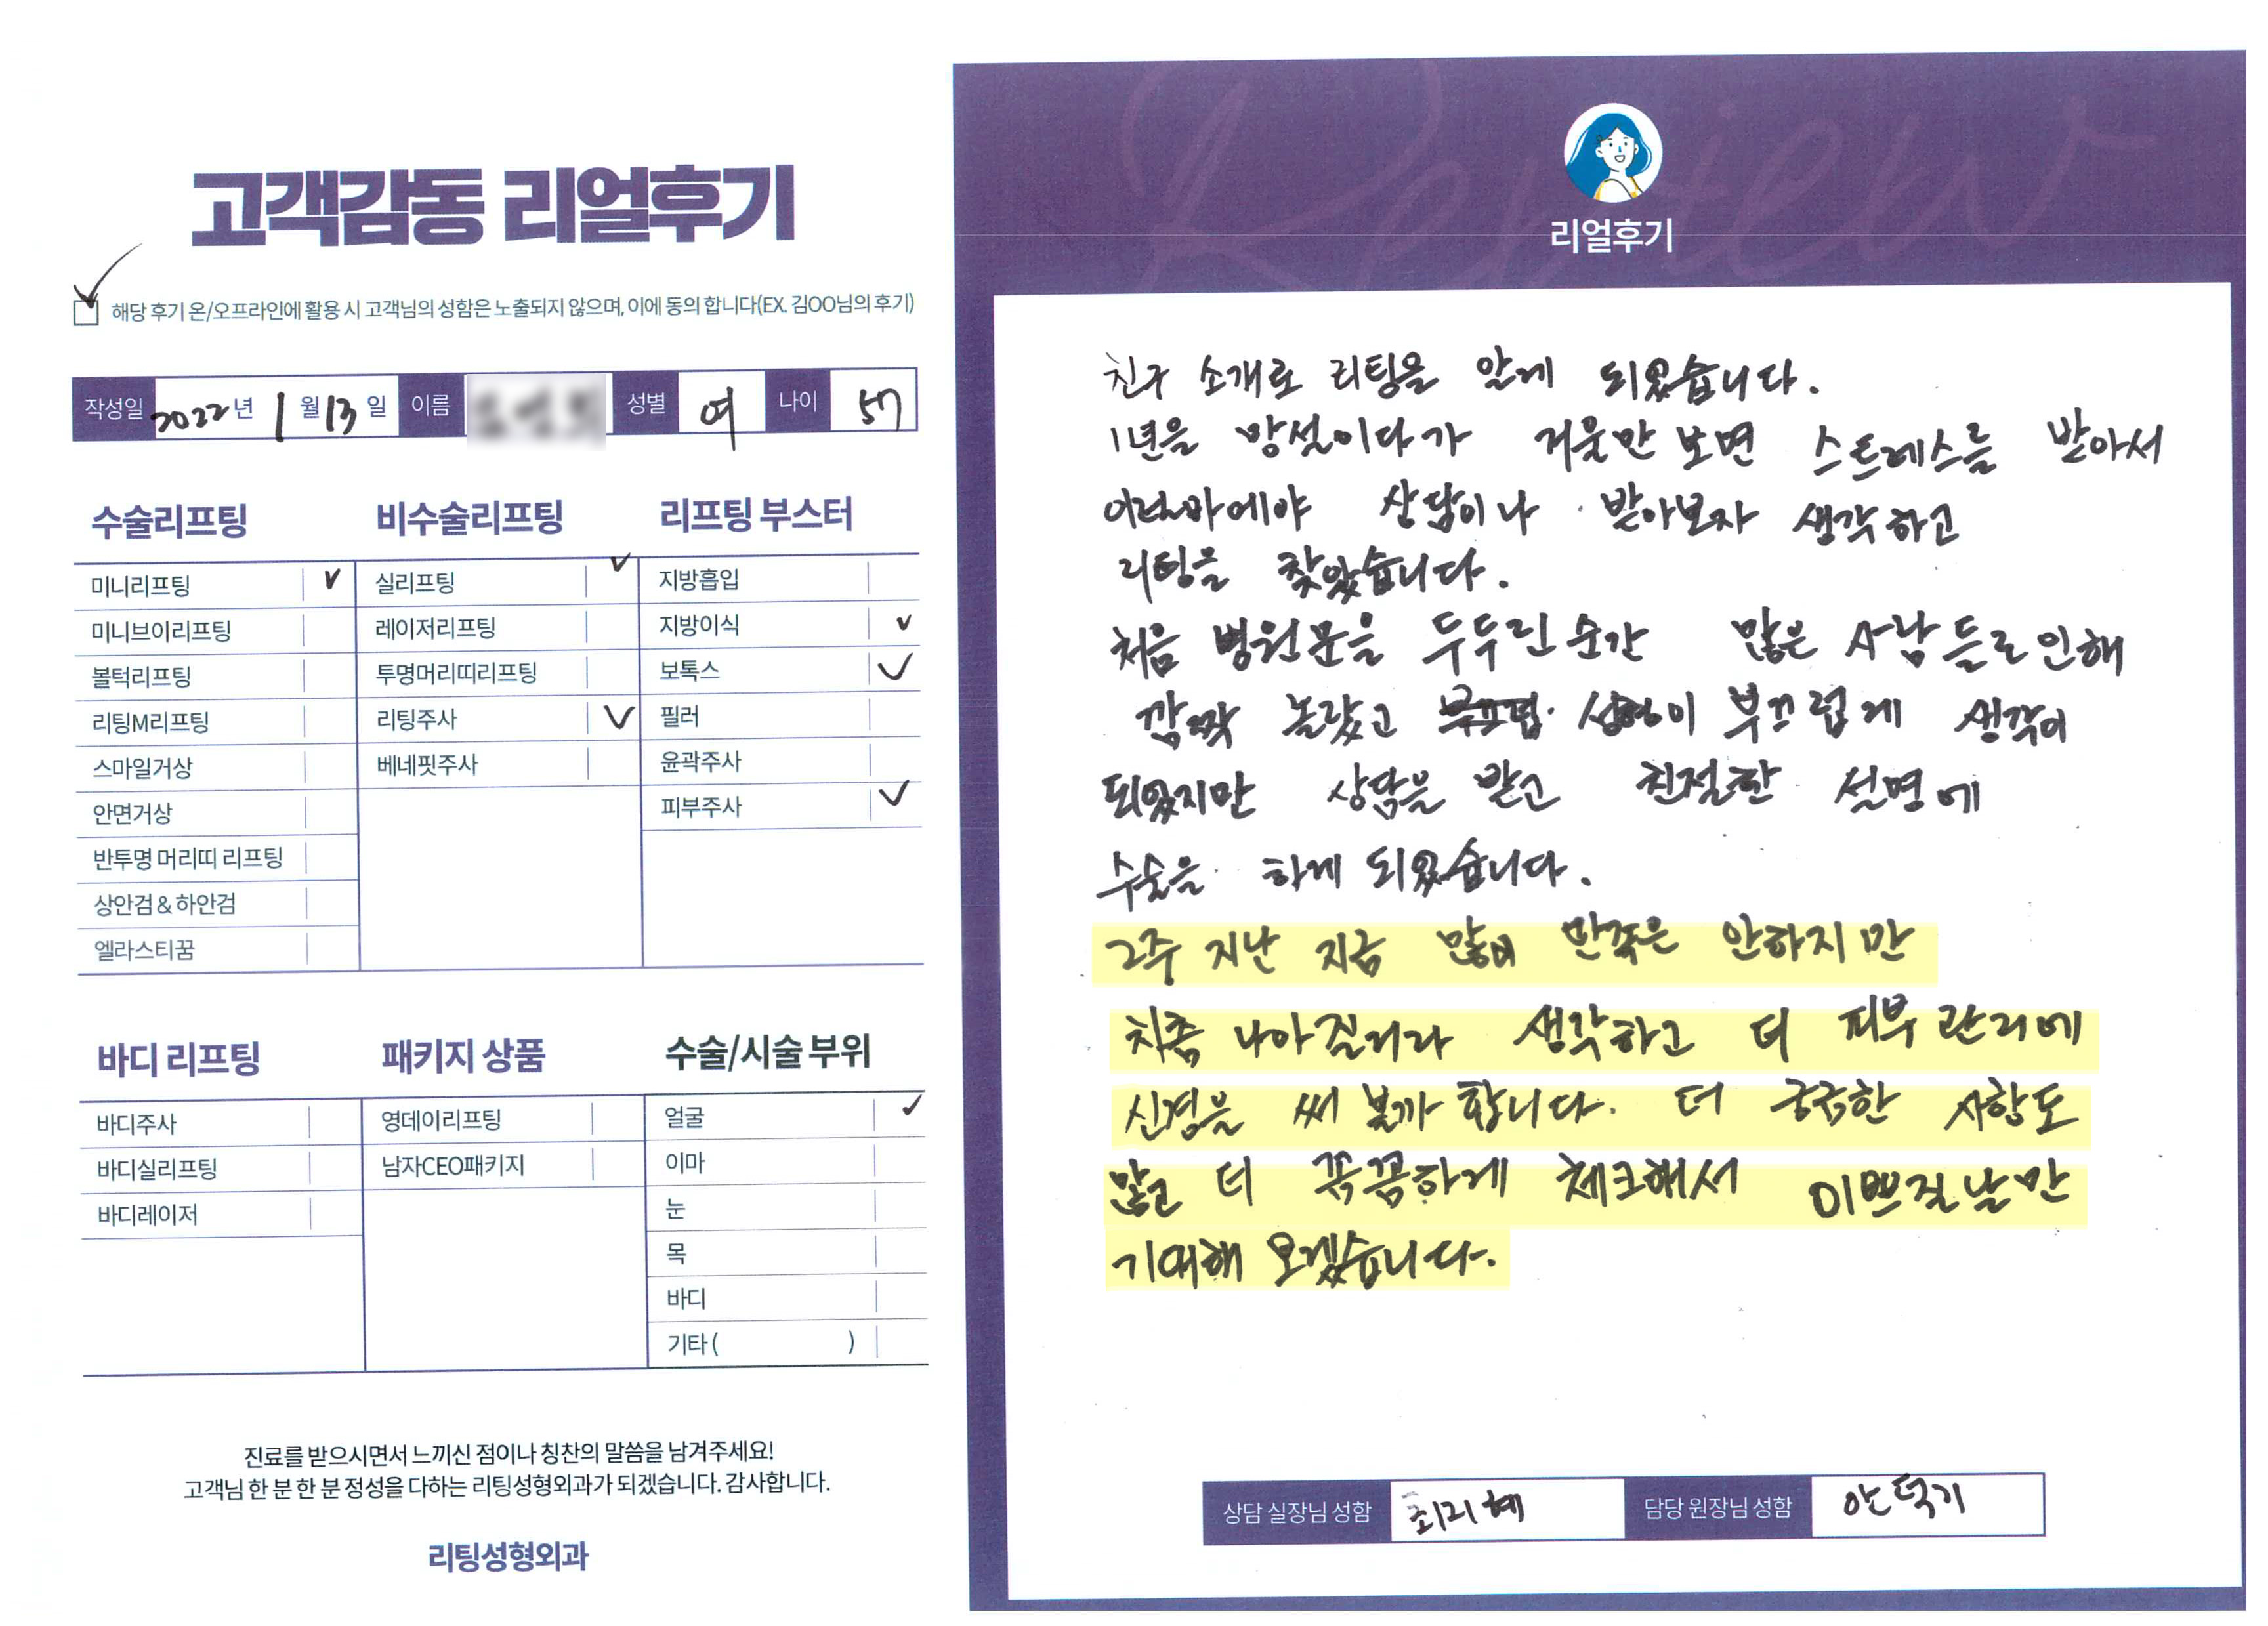 고객감동 리얼후기
해당 후기 온/오프라인에 활용 시 고객님의 성함은 노출되지 않으며, 이에 동의 합니다(EX. 김OO님의 후기)
작성일 2022년 1월 13일 이름 성별 여 나이 57
수술리프팅
미니리프팅
미니브이리프팅
볼턱리프팅
리팅M리프팅
스마일거상
안면거상
반투명 머리띠 리프팅
상안검 & 하안검
엘라스티꿈
비수술리프팅
실리프팅
레이저리프팅
투명머리띠리프팅
리팅주사
베네핏주사
리프팅 부스터
지방흡입
지방이식
보톡스
필러
윤곽주사
피부주사
바디 리프팅
바디주사
바디실리프팅
바디레이저
패키지 상품
영데이리프팅
남자CEO패키지
수술/시술 부위
얼굴
이마
눈
목
바디
기타 ( )
진료를 받으시면서 느끼신 점이나 칭찬의 말씀을 남겨주세요!
고객님 한 분 한 분 정성을 다하는 리팅성형외과가 되겠습니다. 감사합니다.
리팅성형외과
Review
리얼후기
친구 소개로 리팅을 알게 되었습니다.
1년을 망설이다가 거울만 보면 스트레스를 받아서
이러느니 상담이나 받아보자 생각하고
리팅을 찾았습니다.
처음 병원문을 두두린 순간 많은 사람들로 인해
깜짝 놀랐고 성형이 부끄럽게 생각이
되었지만 상담을 받고 친절한 설명에
수술을 하게 되었습니다.
2주 지난 지금 많이 만족은 안하지만
차츰 나아질거라 생각하고 더 피부 관리에
신경을 써 볼까 합니다. 더 궁금한 사항도
많고 더 꼼꼼하게 체크해서 이쁘질 날만
기대해 보겠습니다.
상담 실장님 성함 최리혜 담당 원장님 성함 안덕기